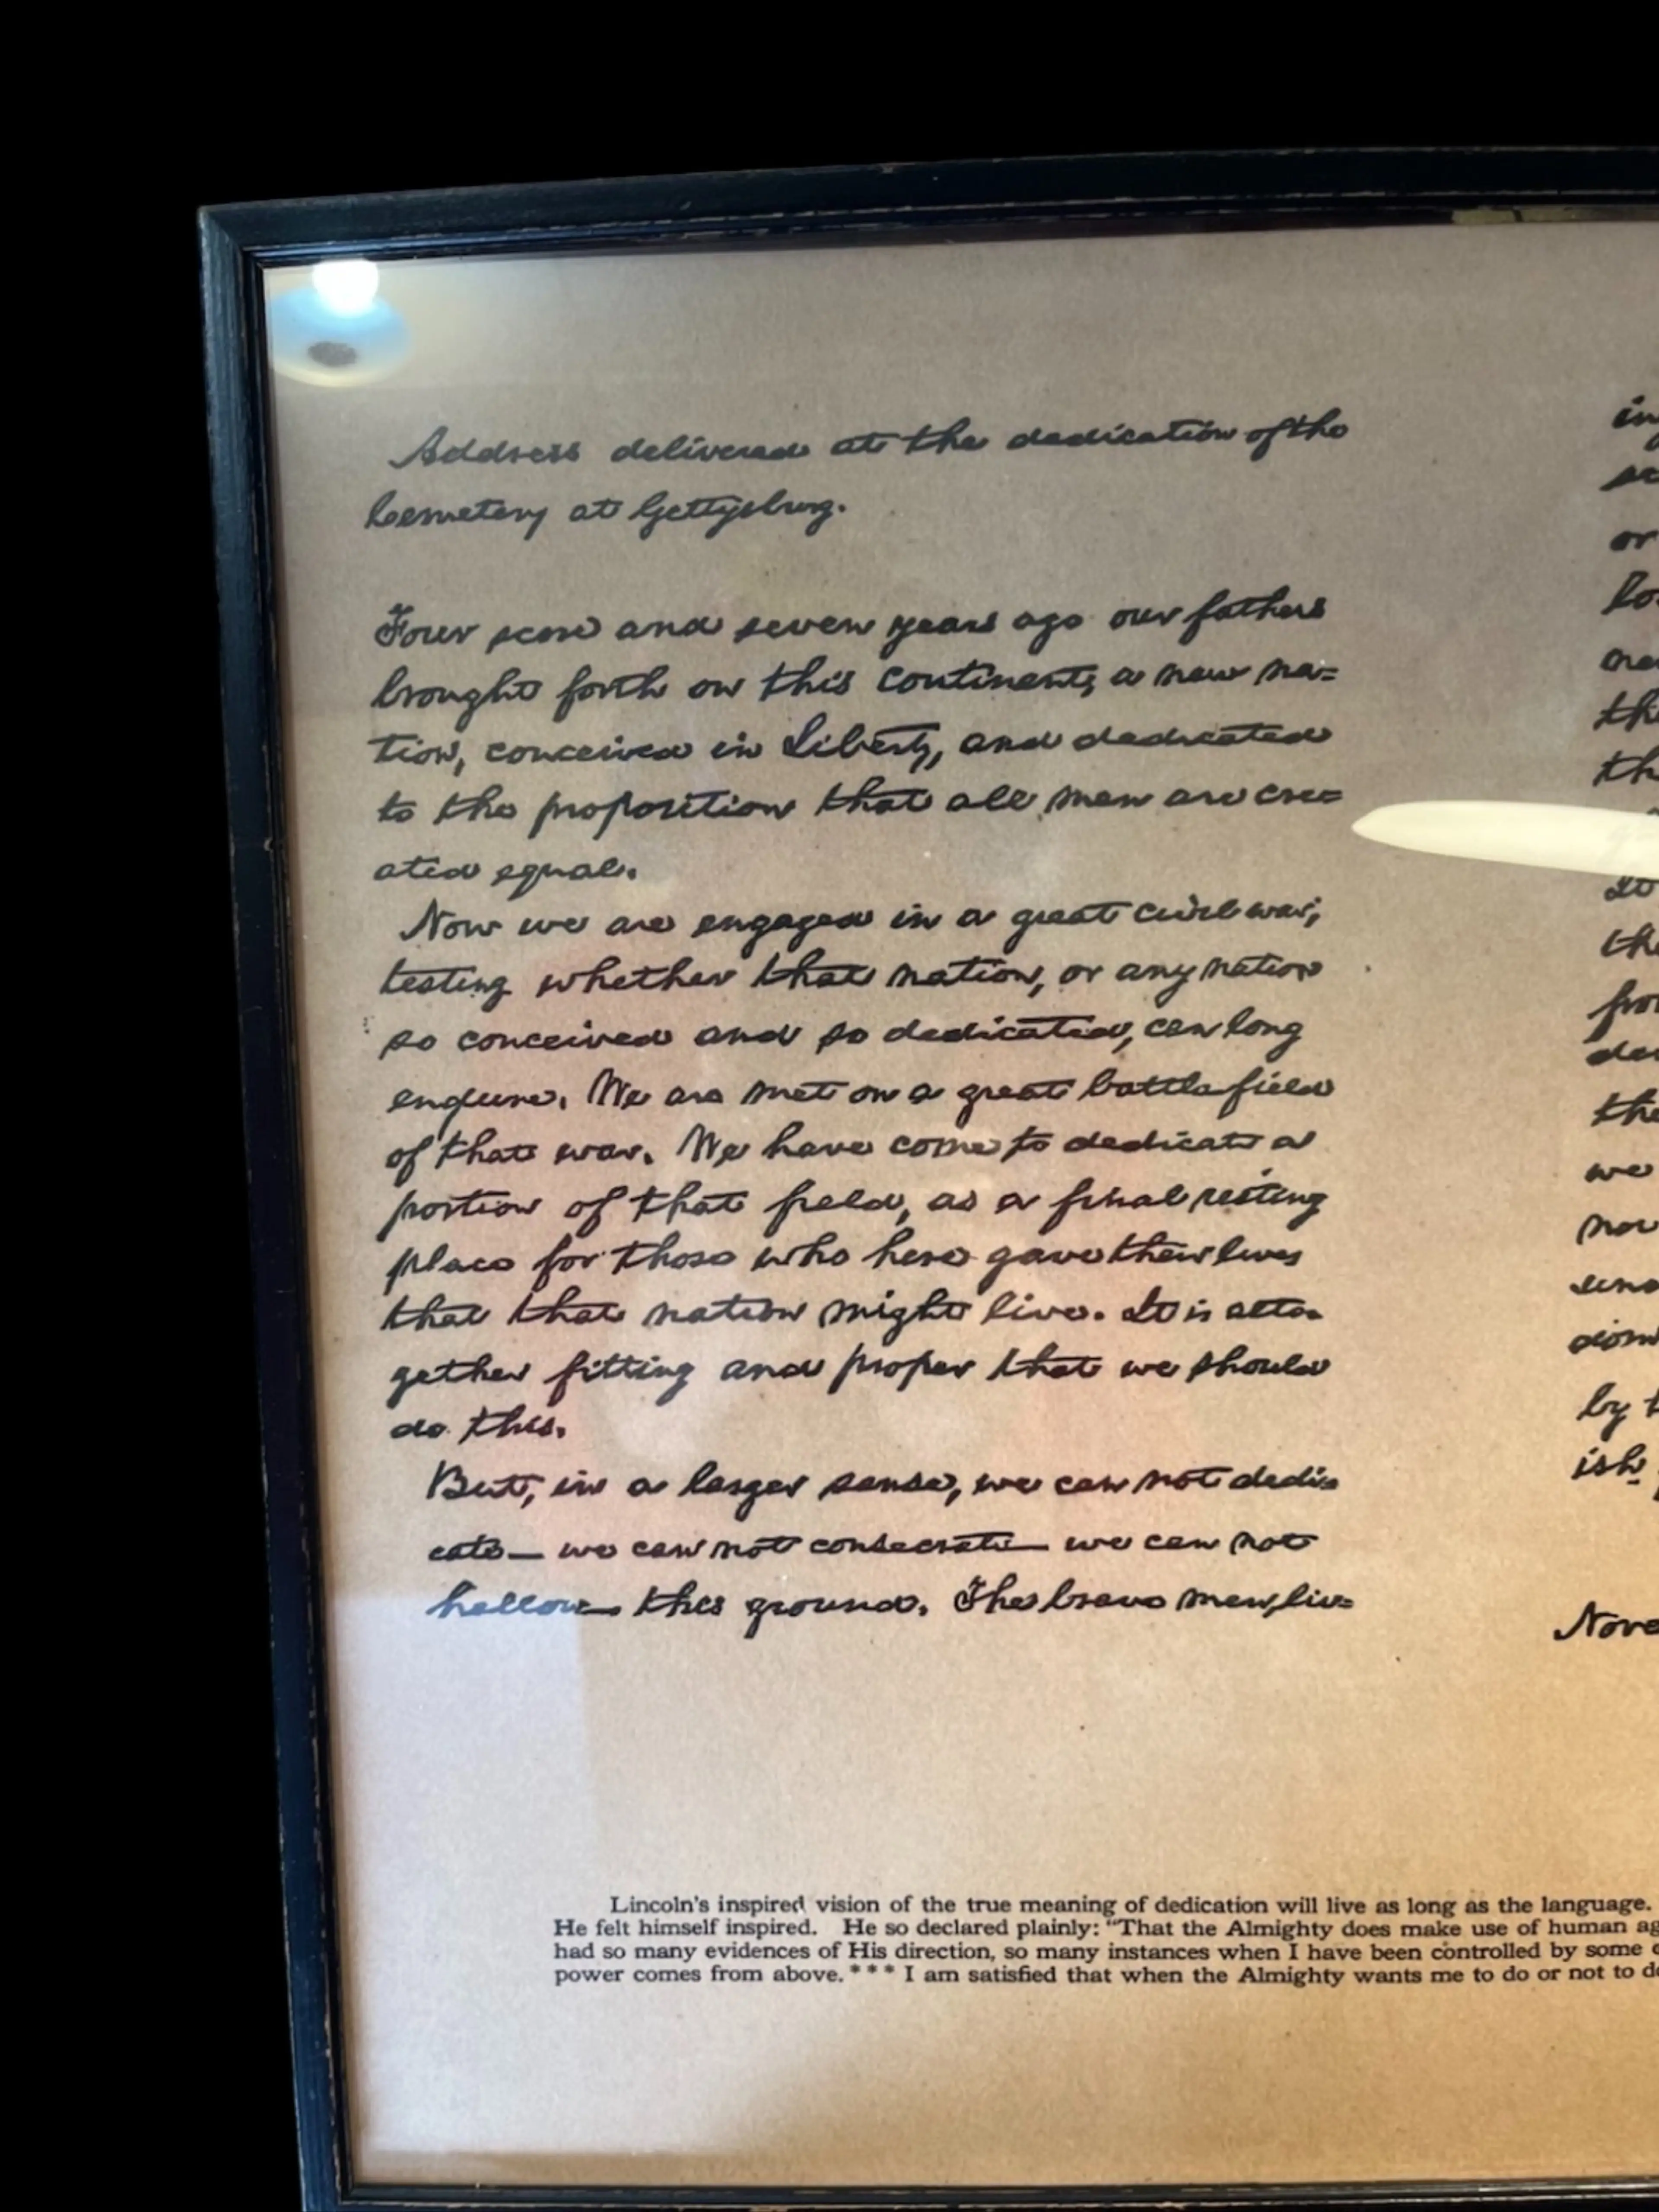 Address delivered at the dedication of the
Cemetery at Gettysburg.
Four score and seven years ago our fathers
brought forth on this continent, a new na=
tion, conceived in Liberty, and dedicated
to the proposition that all men are cre=
ated equal.
Now we are engaged in a great civil war,
testing whether that nation, or any nation
so conceived and so dedicated, can long
endure. We are met on a great battle field
of that war. We have come to dedicate a
portion of that field, as a final resting
place for those who here gave their lives
that that nation might live. It is alto=
gether fitting and proper that we should
do this.
But, in a larger sense, we can not dedi=
cate— we can not consecrate— we can not
hallow— this ground. The brave men, liv=
in
or
the
th
It
the
the
we
by t
ish
Nove
Lincoln's inspired vision of the true meaning of dedication will live as long as the language.
He felt himself inspired. He so declared plainly: "That the Almighty does make use of human ag
had so many evidences of His direction, so many instances when I have been controlled by some
power comes from above. * * * I am satisfied that when the Almighty wants me to do or not to d